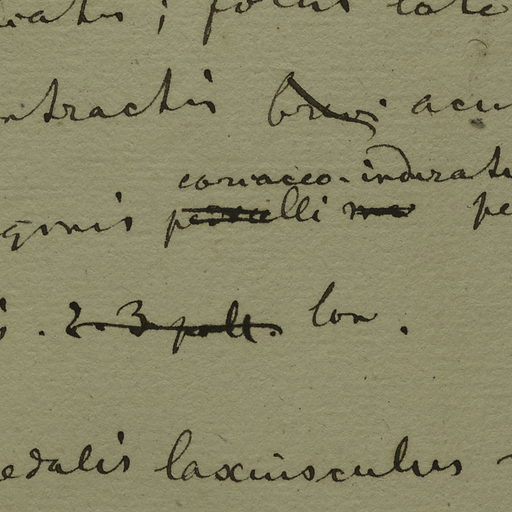 foliis late
ntractis brevi acu
coriaceo-indurati
gonis pe
s. 2-3 poll. lon.
edalis laxiusculus -